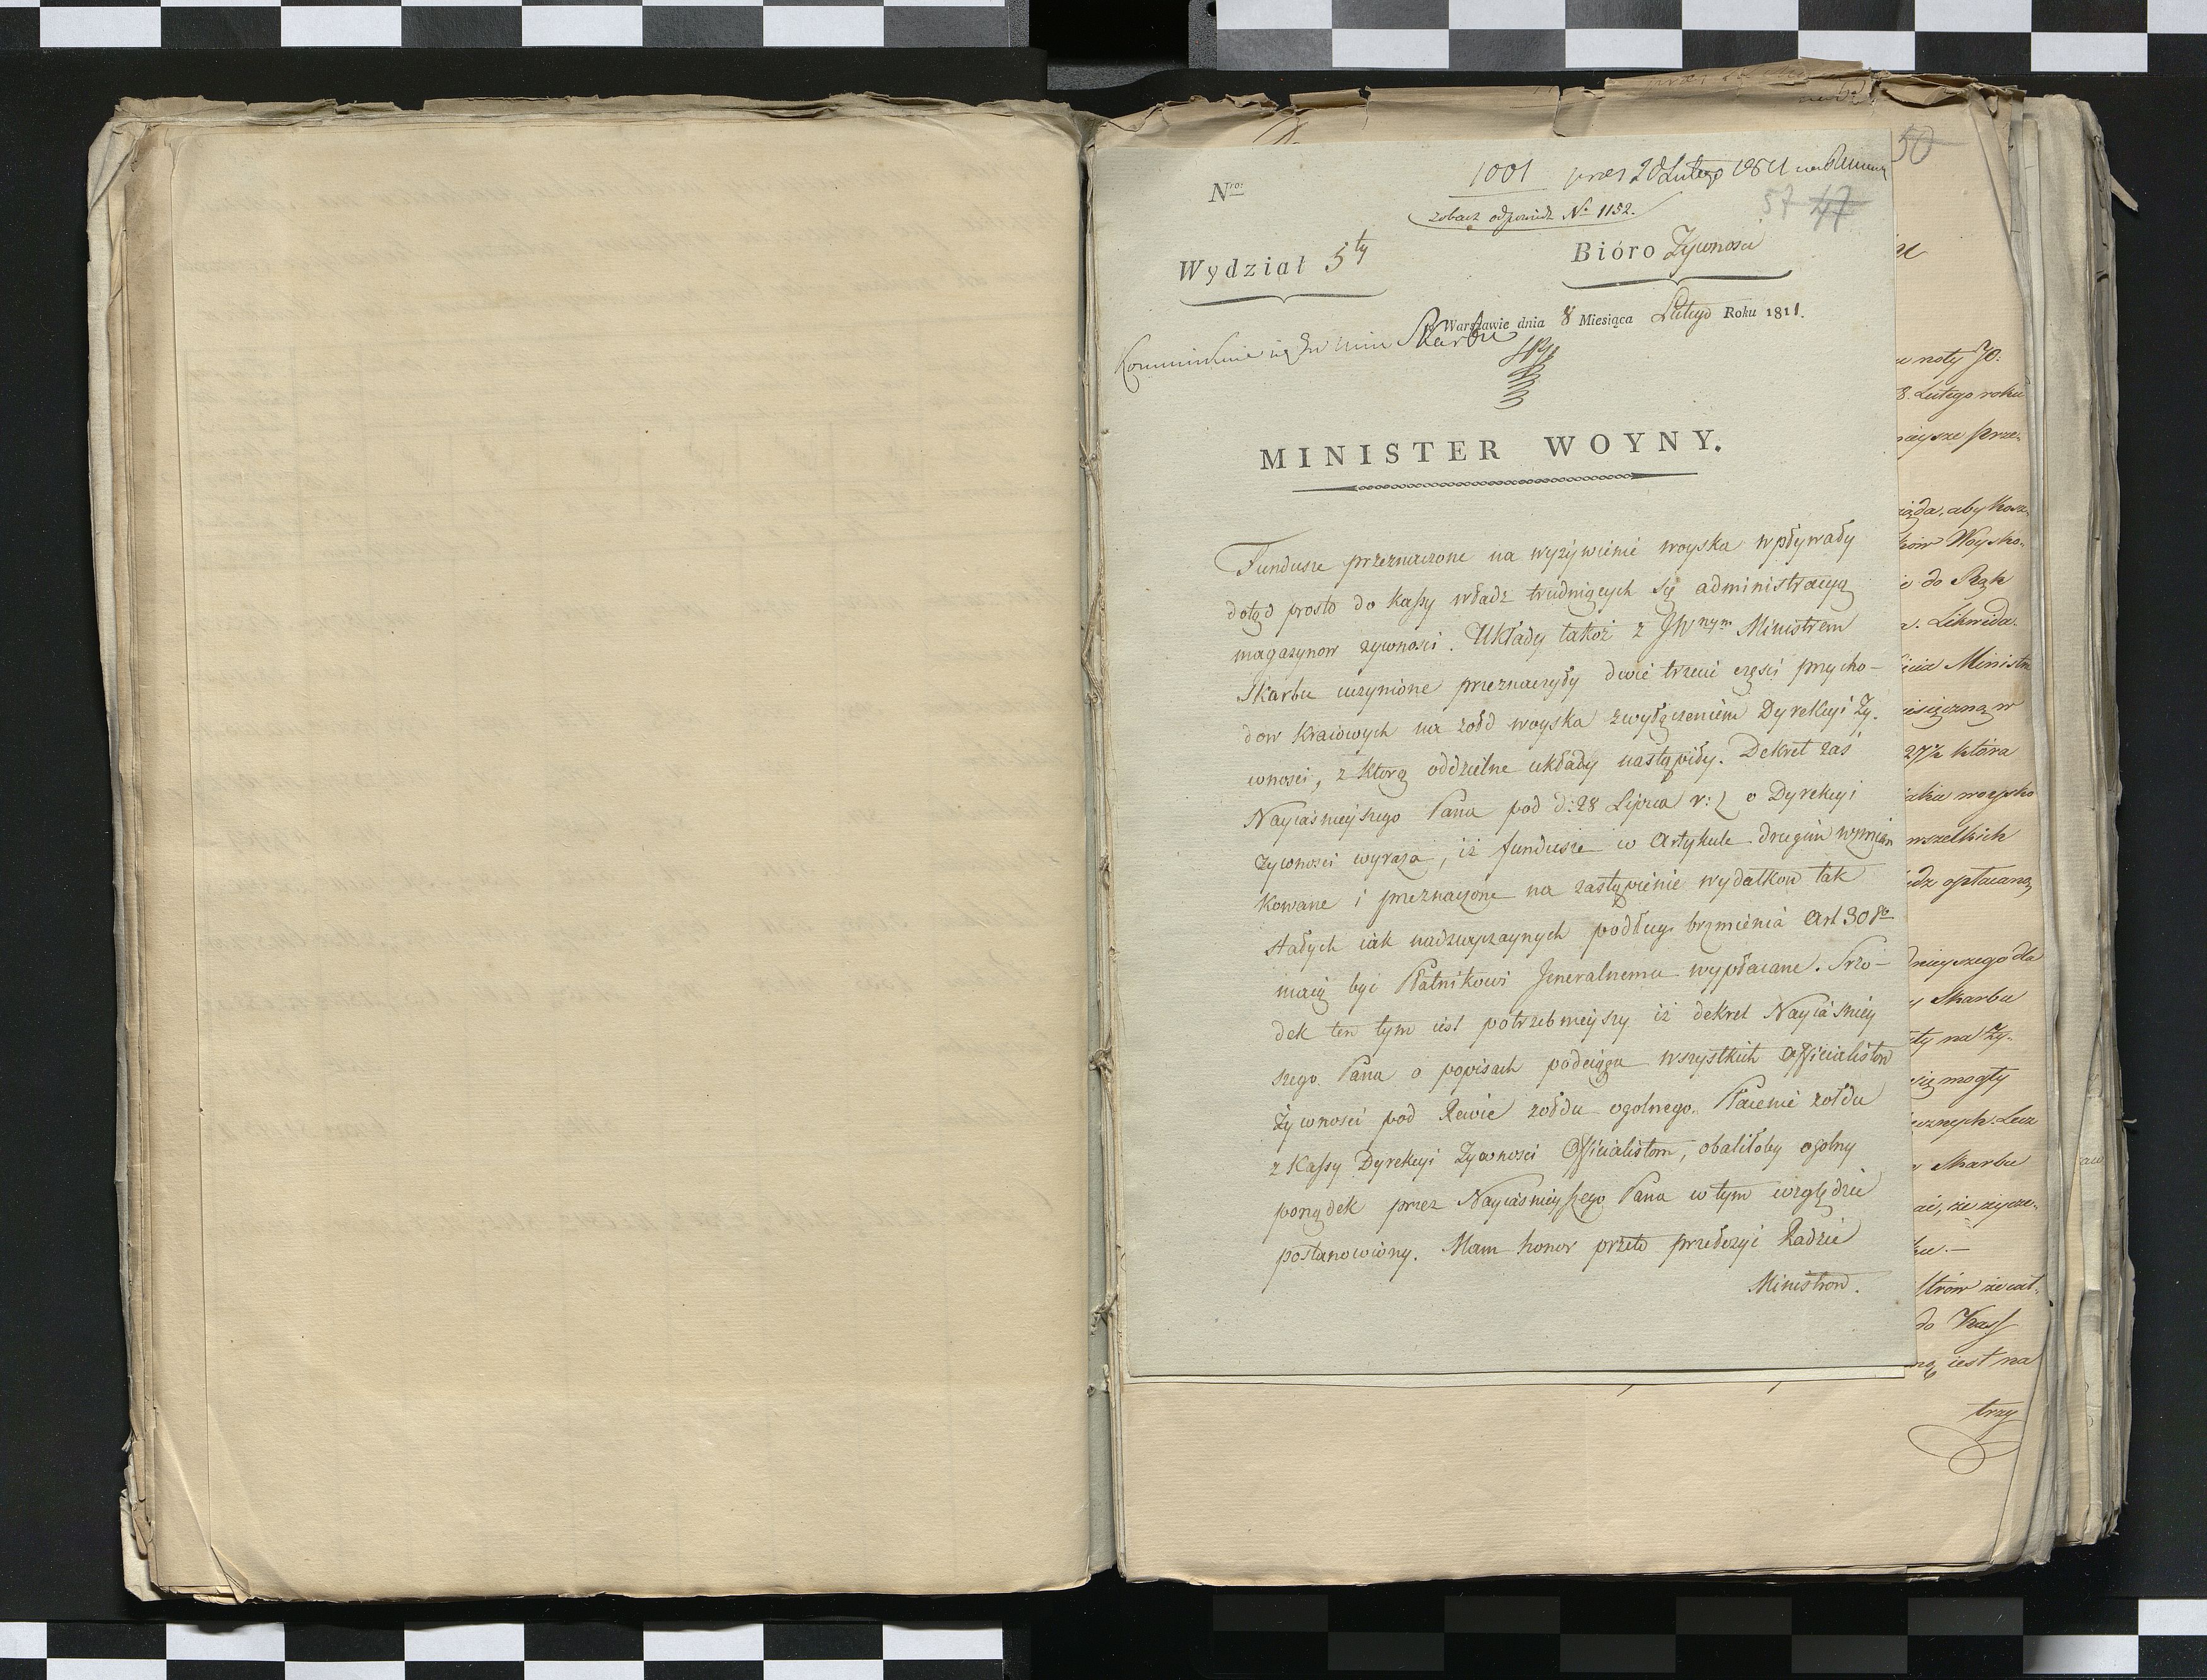 50
Nro:
1001 prez 20 Lutego 1811
zobacz odpowiedz No 1152.
57 47
Wydział 5ty
Bióro Zywnosci
w Warszawie dnia 8 Miesiąca Lutego Roku 1811.
Skarbu
MINISTER WOYNY.
Fundusze przeznaczone na wyzywienie woyska wpływały
dotąd prosto do kassy władz trudniących się administracyą
magazynow zywnosci. Układy takoż z JWnym Ministrem
Skarbu uczynione przeznaczyły dwie trzecie części przycho-
dow kraiowych na zołd woyska z wyłączeniem Dyrekcyi Zy-
wnosci, z ktorą oddzielne układy nastąpiły. Dekret zaś
Nayiasnieyszego Pana pod d: 28 Lipca r: z o Dyrekcyi
Zywnosci wyraża, iż fundusze w Artykule drugim wzmian
kowane i przeznaczone na zastąpienie wydatkow tak
stałych iak nadzwyczaynych podług brzmienia Art 30go
maią byc Płatnikowi Jeneralnemu wypłacane. Srzo-
dek ten tym iest potrzebnieyszy iż dekret Nayiasniey
szego Pana o popisach podciąga wszystkich Officialistow
Zywnosci pod Rewie zołdu ogolnego. Płacenie zołdu
z Kassy Dyrekcyi Zywnosci Officialistom, obaliłoby ogolny
porządek przez Nayiasnieyszego Pana w tym względzie
postanowiony. Mam honor przeto przełozyć Radzie
Ministrow.
noty JO.
8. Lutego roku
prze-
aby kosz
Woysko-
do Rąk
Likwida-
Ministra
w
która
woysko
wszelkich
opłacaną
dla
Skarbu
na Zy-
się mogły
Lecz
Skarbu
że
do Kass
iest na
trzy